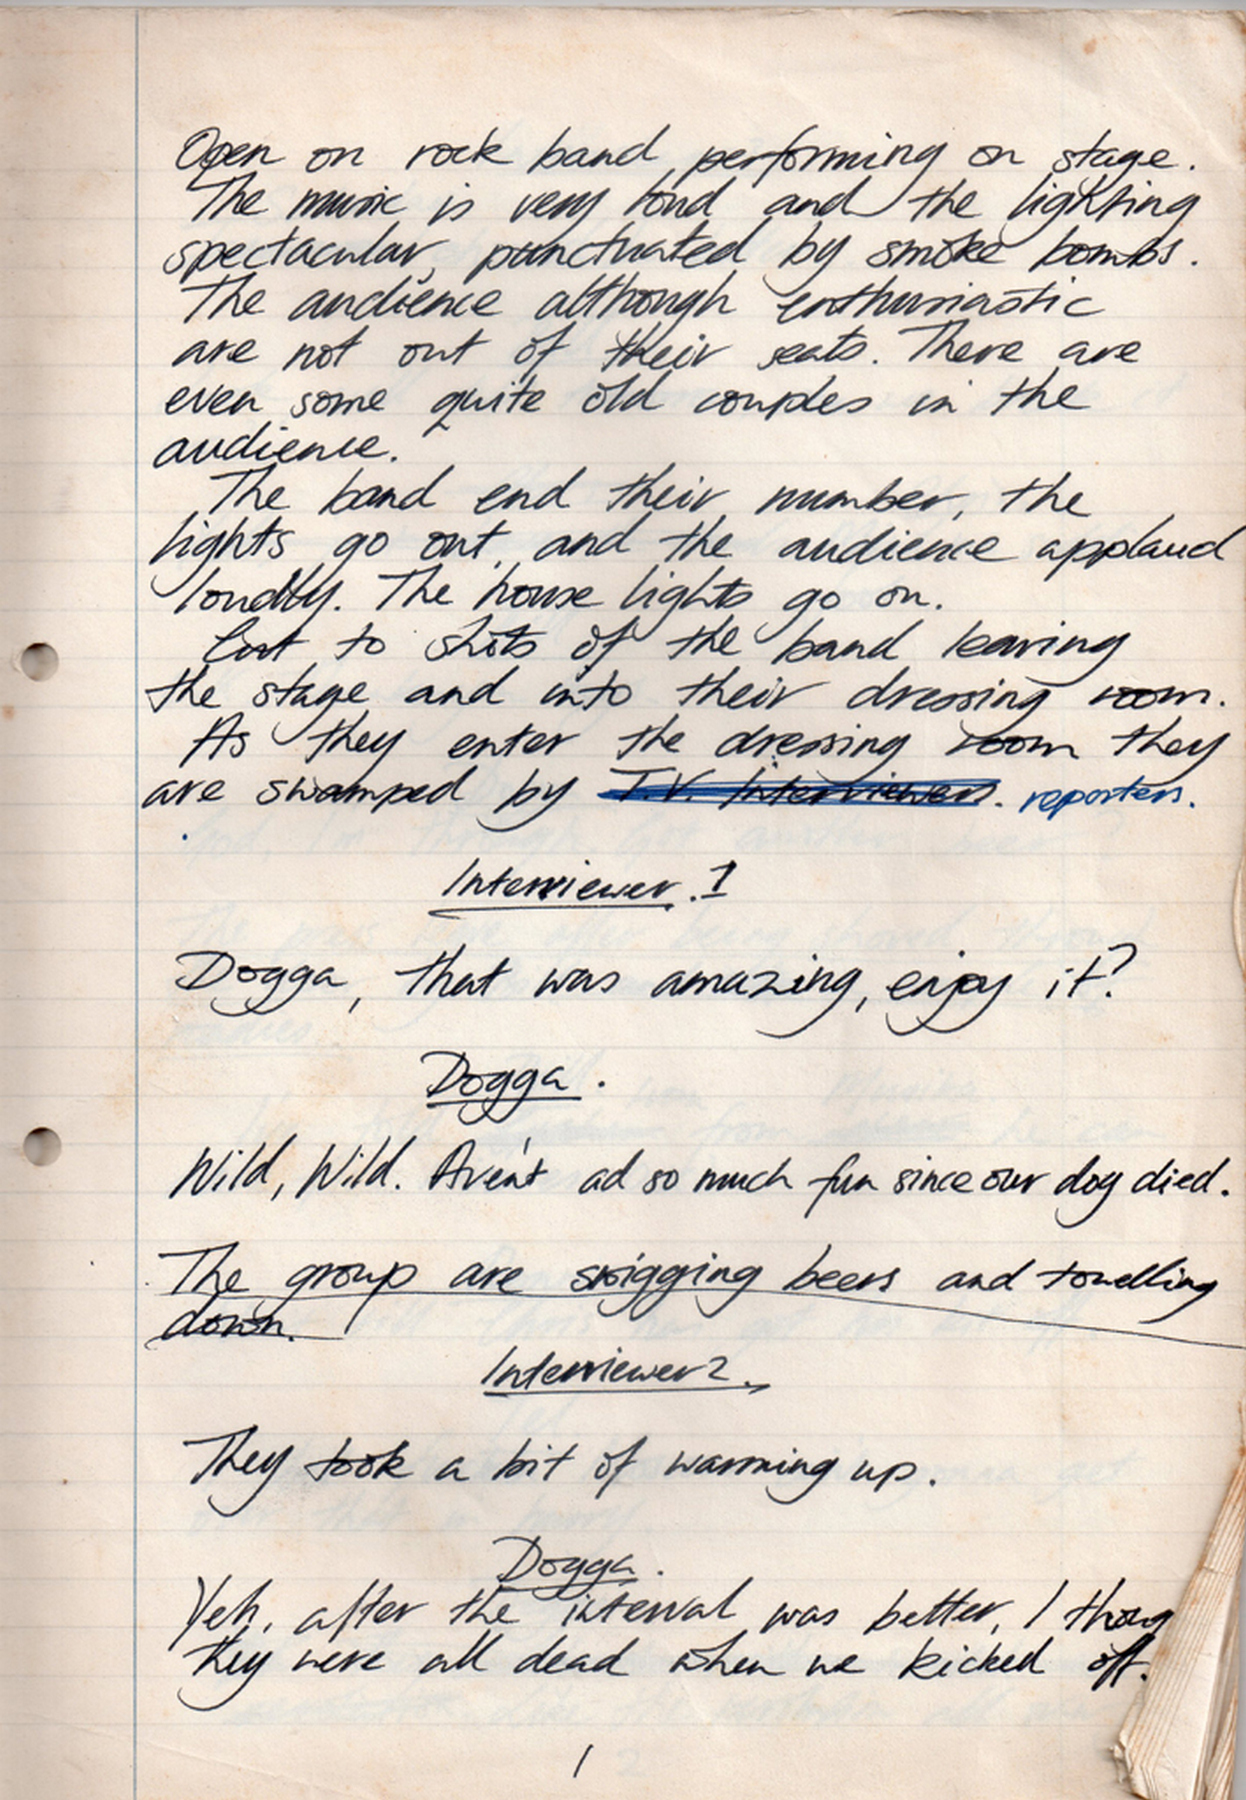 Open on rock band performing on stage.
The music is very loud and the lighting
spectacular, punctuated by smoke bombs.
The audience although enthusiastic
are not out of their seats. There are
even some quite old couples in the
audience.
The band end their number, the
lights go out, and the audience applaud
loudly. The house lights go on.
Cut to shots of the band leaving
the stage and into their dressing room.
As they enter the dressing room they
are swamped by T.V. Interviewers. reporters.
Interviewer. 1
Dogga, that was amazing, enjoy it?
Dogga.
Wild, Wild. Aven't ad so much fun since our dog died.
The group are swigging beers and towelling
down.
Interviewer 2.
They took a bit of warming up.
Dogga.
Yeh, after the interval was better, I thoug
they were all dead when we kicked off.
1